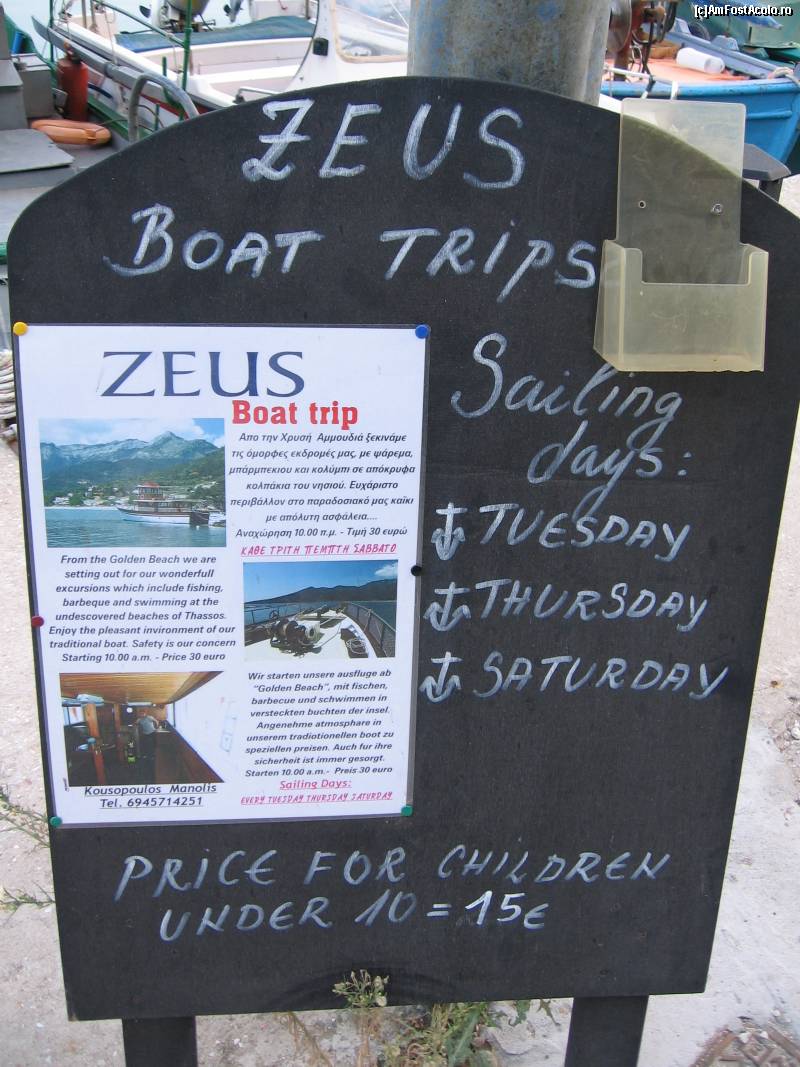 [c]AmFostAcolo.ro
ZEUS
BOAT TRIPS
Sailing
days:
TUESDAY
THURSDAY
SATURDAY
ZEUS
Boat trip
Απο την Χρυσή Αμμουδιά ξεκινάμε
τις όμορφες εκδρομές μας, με ψάρεμα,
μπάρμπεκιου και κολύμπι σε απόκρυφα
κολπάκια του νησιού. Ευχάριστο
περιβάλλον στο παραδοσιακό μας καϊκι
με απόλυτη ασφάλεια....
Αναχώρηση 10.00 π.μ. - Τιμή 30 ευρώ
ΚΑΘΕ ΤΡΙΤΗ ΠΕΜΠΤΗ ΣΑΒΒΑΤΟ
From the Golden Beach we are
setting out for our wonderfull
excursions which include fishing,
barbeque and swimming at the
undescovered beaches of Thassos.
Enjoy the pleasant invironment of our
traditional boat. Safety is our concern
Starting 10.00 a.m. - Price 30 euro
Wir starten unsere ausfluge ab
"Golden Beach", mit fischen,
barbecue und schwimmen in
versteckten buchten der insel.
Angenehme atmosphare in
unserem tradiotionellen boot zu
speziellen preisen. Auch fur ihre
sicherheit ist immer gesorgt.
Starten 10.00 a.m.- Preis 30 euro
Sailing Days:
EVERY TUESDAY THURSDAY SATURDAY
Kousopoulos Manolis
Tel. 6945714251
PRICE FOR CHILDREN
UNDER 10 = 15€